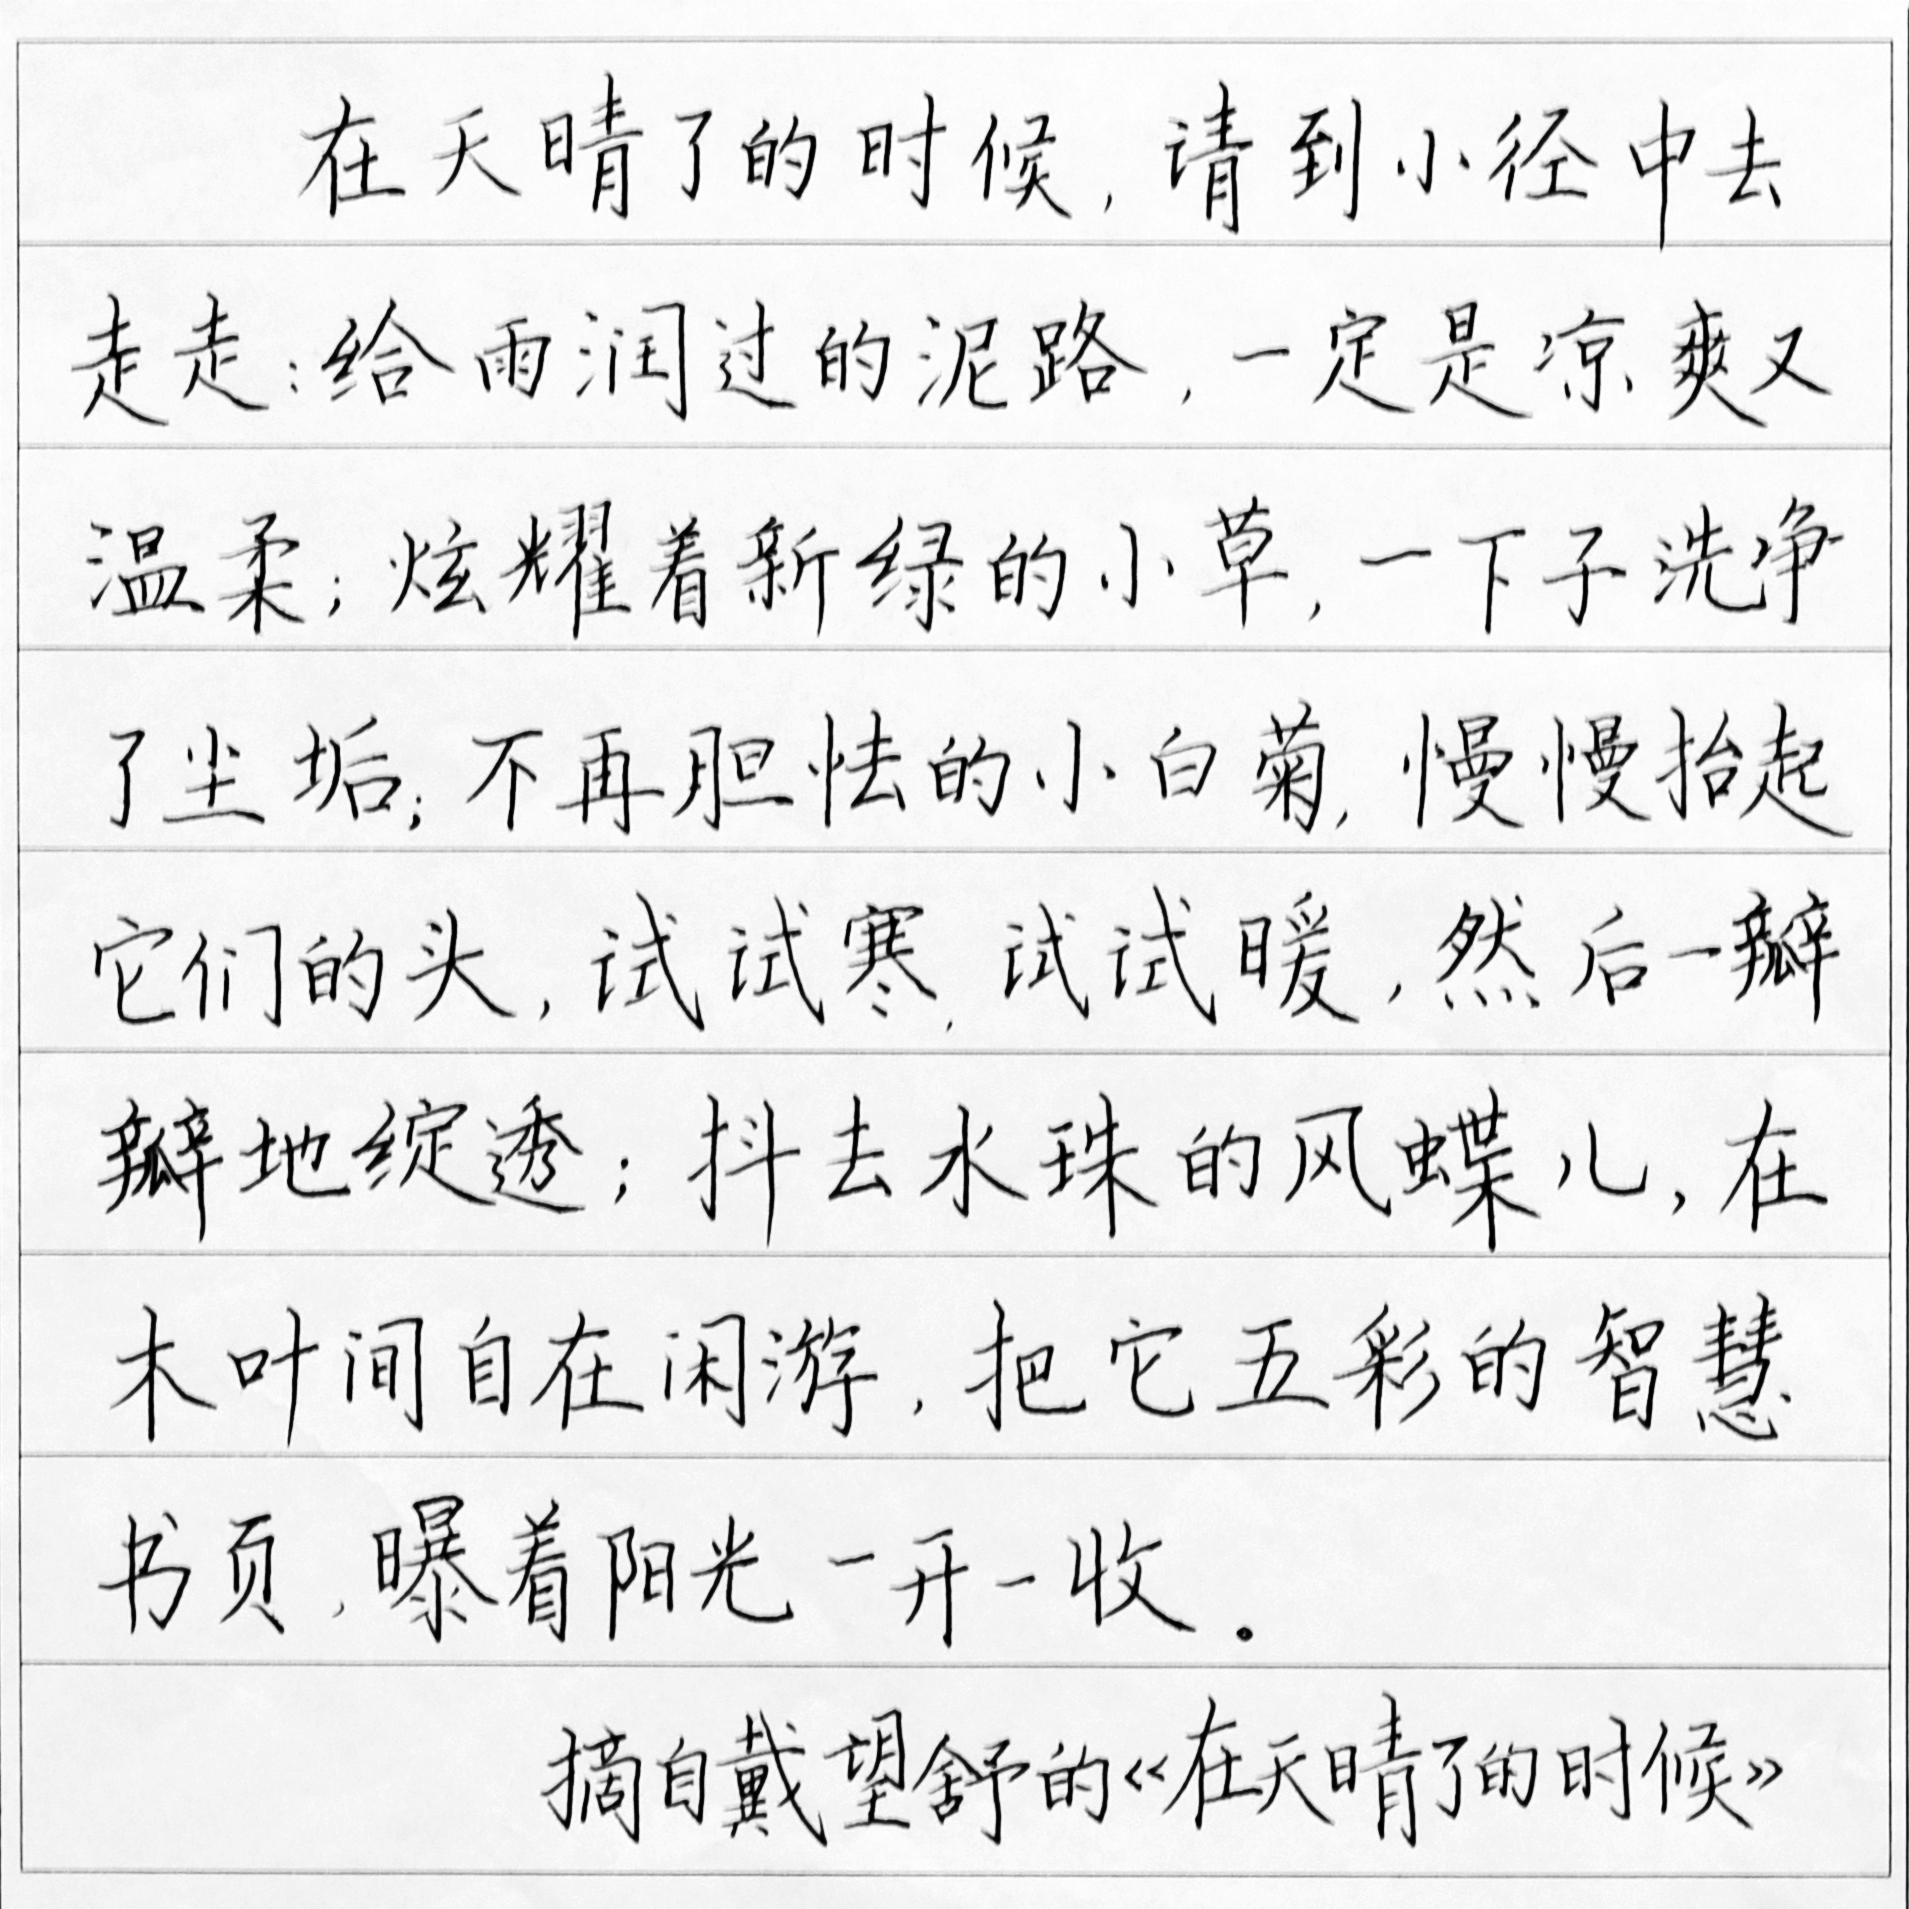 在天晴了的时候，请到小径中去
走走：给雨润过的泥路，一定是凉爽又
温柔；炫耀着新绿的小草，一下子洗净
了尘垢；不再胆怯的小白菊，慢慢抬起
它们的头，试试寒，试试暖，然后一瓣
瓣地绽透；抖去水珠的风蝶儿，在
木叶间自在闲游，把它五彩的智慧
书页，曝着阳光一开一收。
摘自戴望舒的《在天晴了的时候》